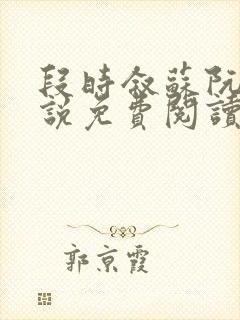 段時叙蘇阮
說免費閱讀
郭京霞